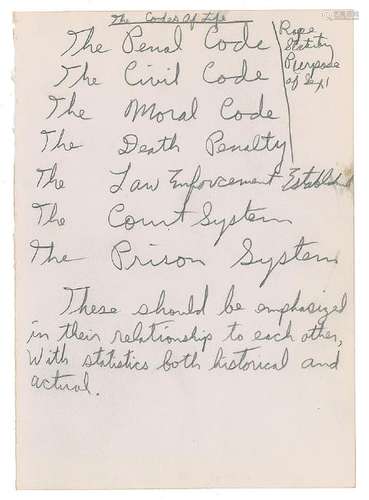 The Codes Of Life
The Penal Code
The Civil Code
The Moral Code
The Death Penalty
The Law Enforcement Establishd
The Court System
The Prison System
Rape
Purpose
of Sex
These should be emphasized
in their relationship to each other,
With statistics both historical and
actual.